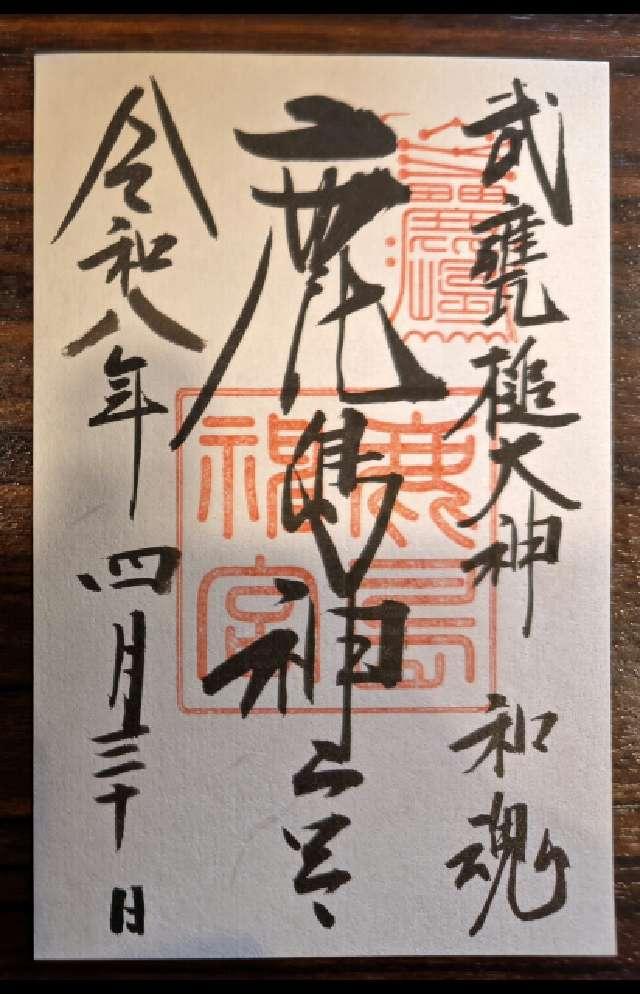 武甕槌大神 和魂
鹿島神宮
令和八年四月三十日
鹿島
神宮